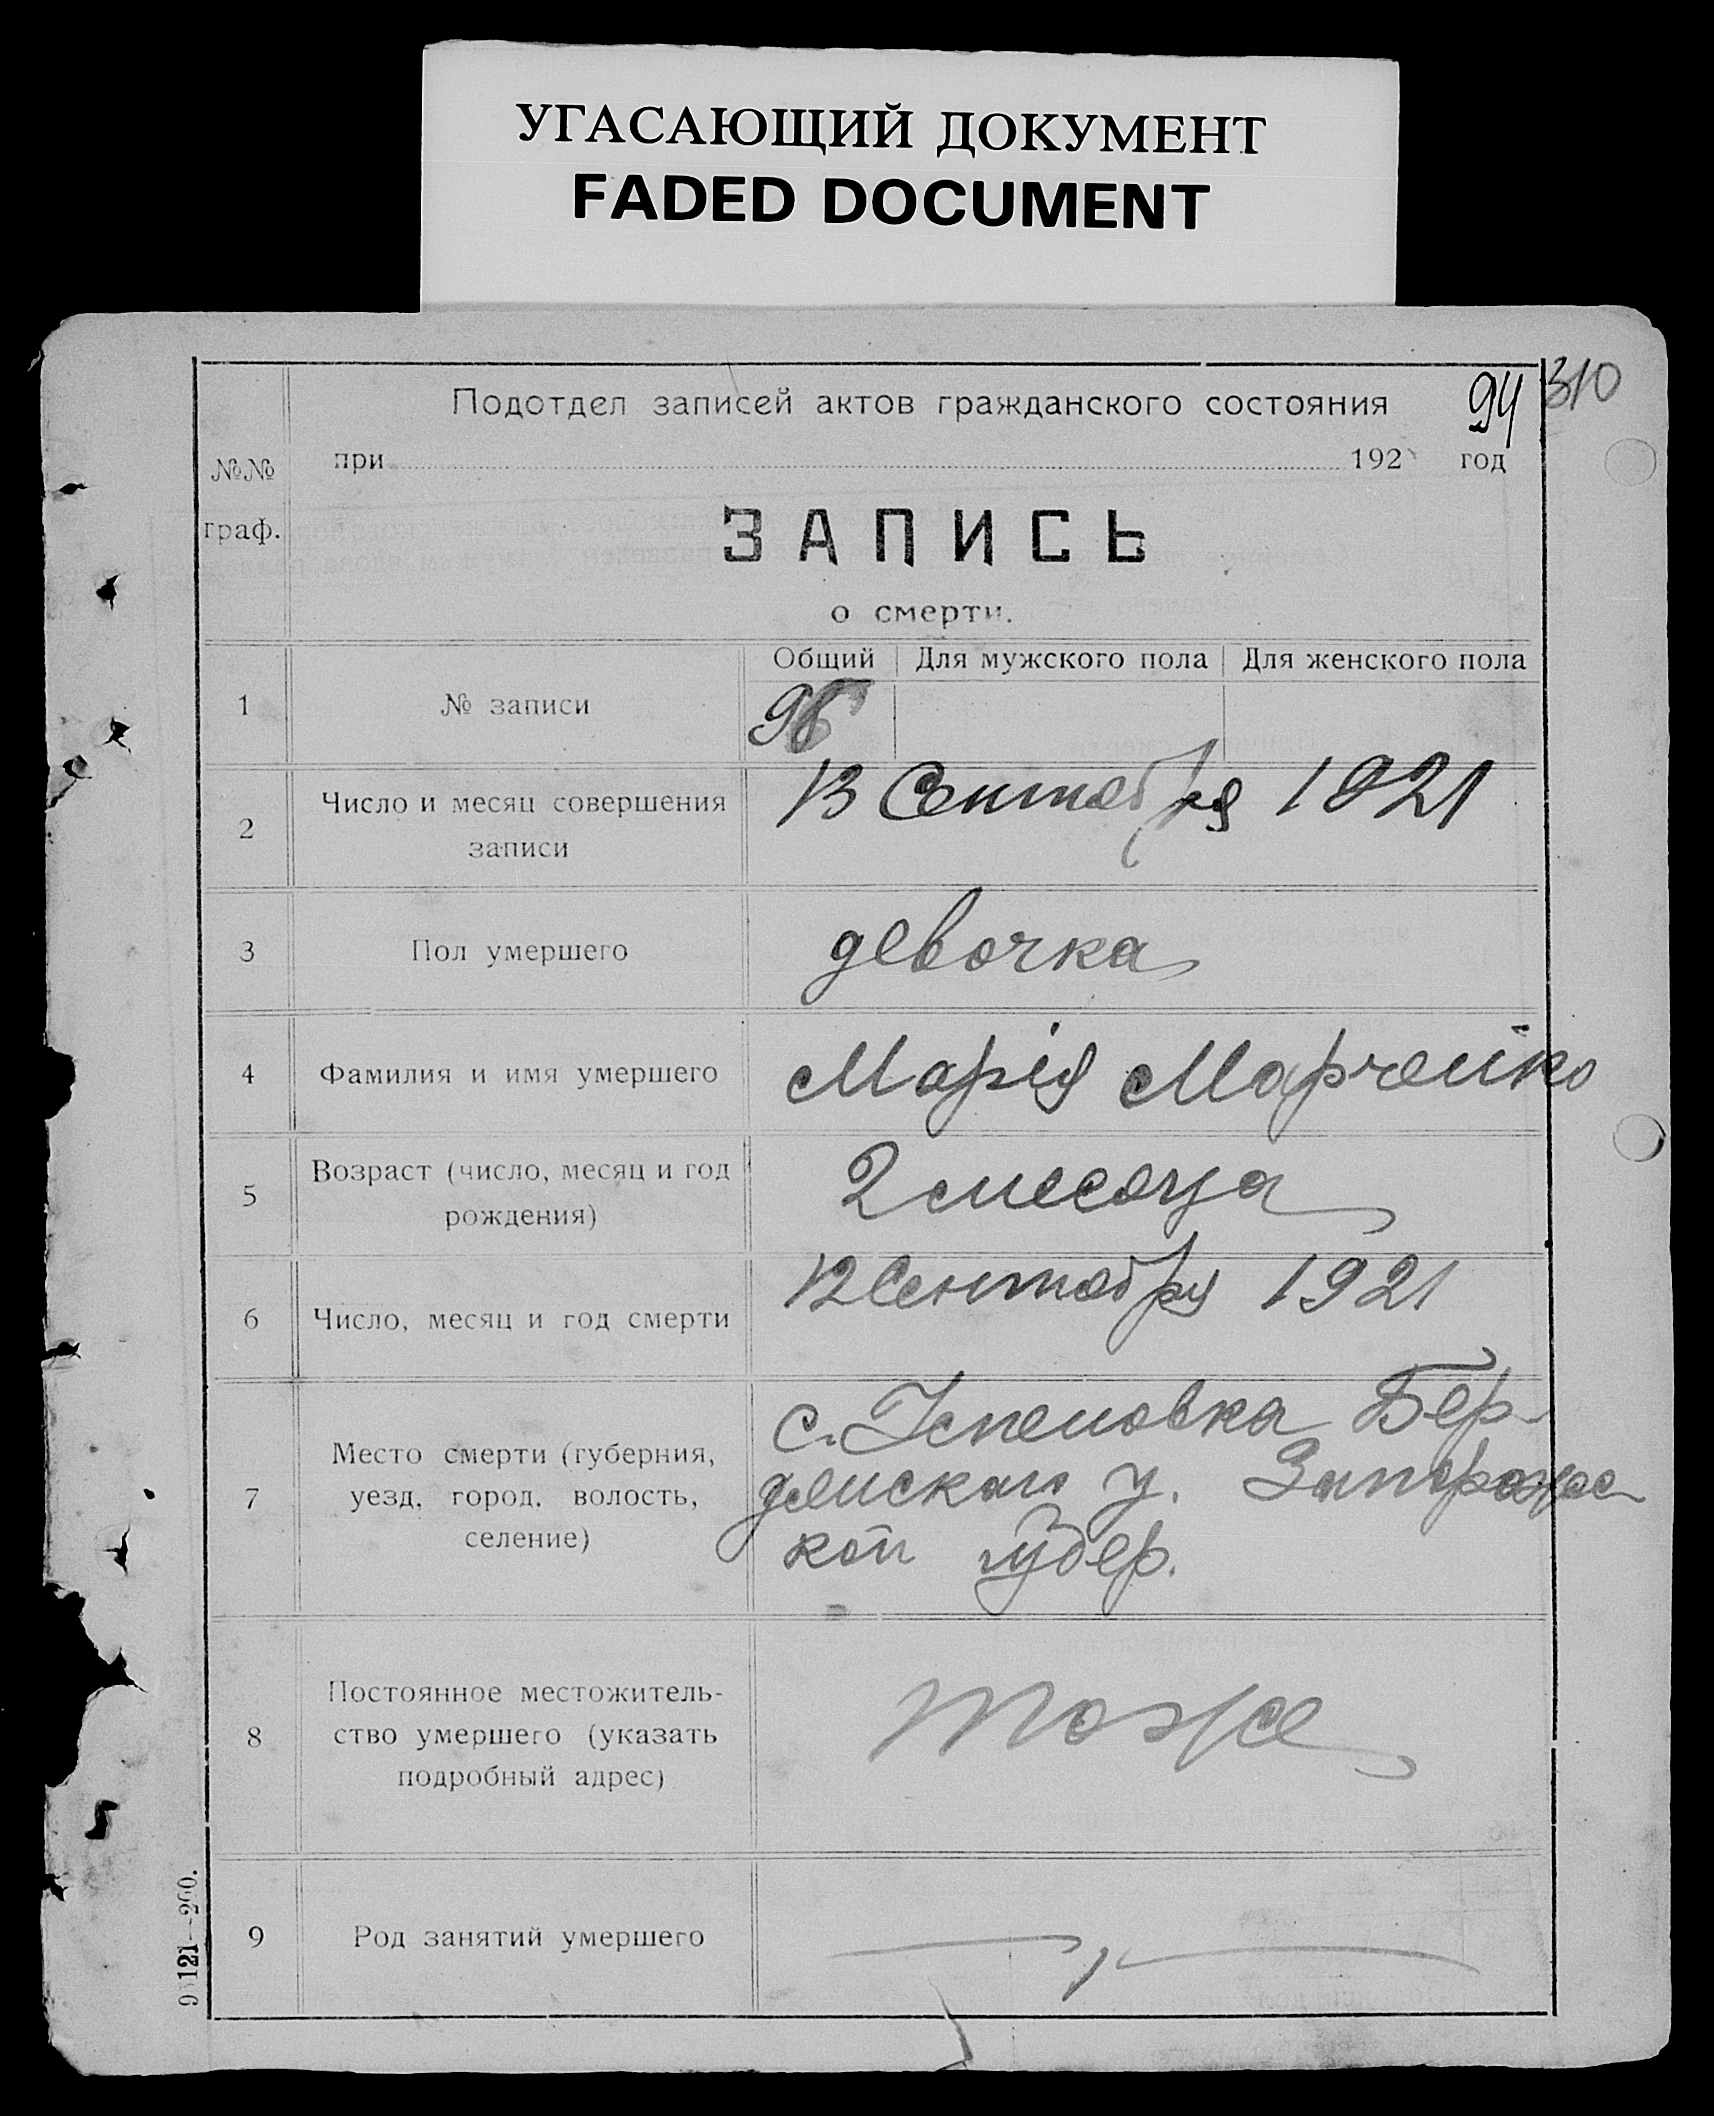 УГАСАЮЩИЙ ДОКУМЕНТ
FADED DOCUMENT
94 310
Подотдел записей актов гражданского состояния
при 192 год
№№
граф.
ЗАПИСЬ
о смерти.
Общий Для мужского пола Для женского пола
1 № записи
2 Число и месяц совершения
записи
13 Сентября 1921
3 Пол умершего девочка
4 Фамилия и имя умершего Марія Марченко
5 Возраст (число, месяц и год
рождения)
2 месеца
6 Число, месяц и год смерти 12 Сентября 1921
7 Место смерти (губерния,
уезд, город, волость,
селение)
с. Успеновка Бер-
дянскаго у. Запорожс
кой губер.
8 Постоянное местожитель-
ство умершего (указать
подробный адрес)
тоже
9 Род занятий умершего